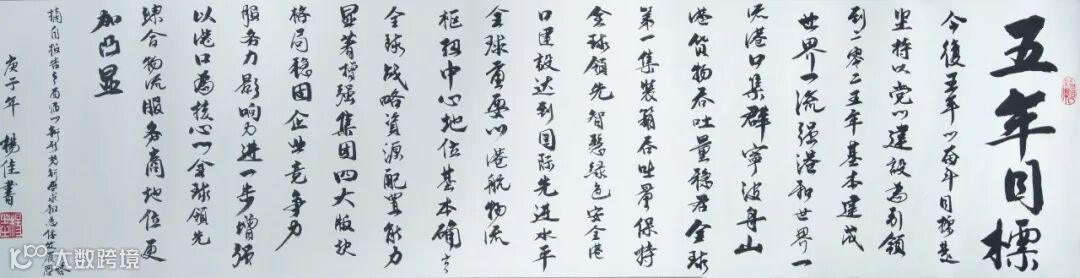 五年目標
今後五年的奋斗目標是
坚持以党的建設為引領
到二零二五年基本建成
世界一流强港和世界一
流港口集群寧波舟山
港貨物吞吐量稳居全球
第一集装箱吞吐量保持
全球領先智慧绿色安全港
口建設达到国际先進水平
全球重要的港航物流
枢纽中心地位基本确立
全球战略資源配置能力
显著增强集团四大版块
格局稳固企业竞争力
服务力影响力進一步增强
以港口為核心的全球領先
综合物流服务商地位更
加凸显
摘自报告
庚子年 楊佳書
大数跨境